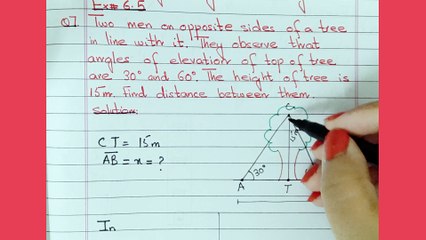 Ex# 6.5
Q7 Two men on opposite sides of a tree
in line with it. They observe that
angles of elevation of top of tree
are 30° and 60°. The height of tree is
15m. Find distance between them.
Solution:
C
C T = 15m
15m
AB = x = ?
30°
A
T
In